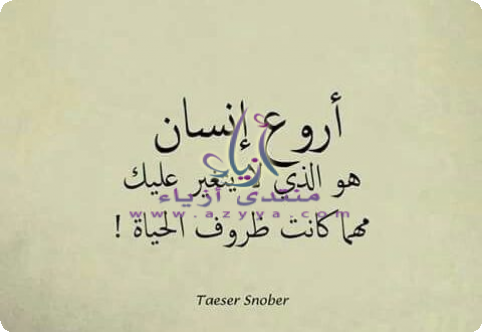 أروع إنسان
هو الذي لا يتغير عليك
أزياء
منتدى أزياء
www.azyya.com
مهما كانت ظروف الحياة !
Taeser Snober